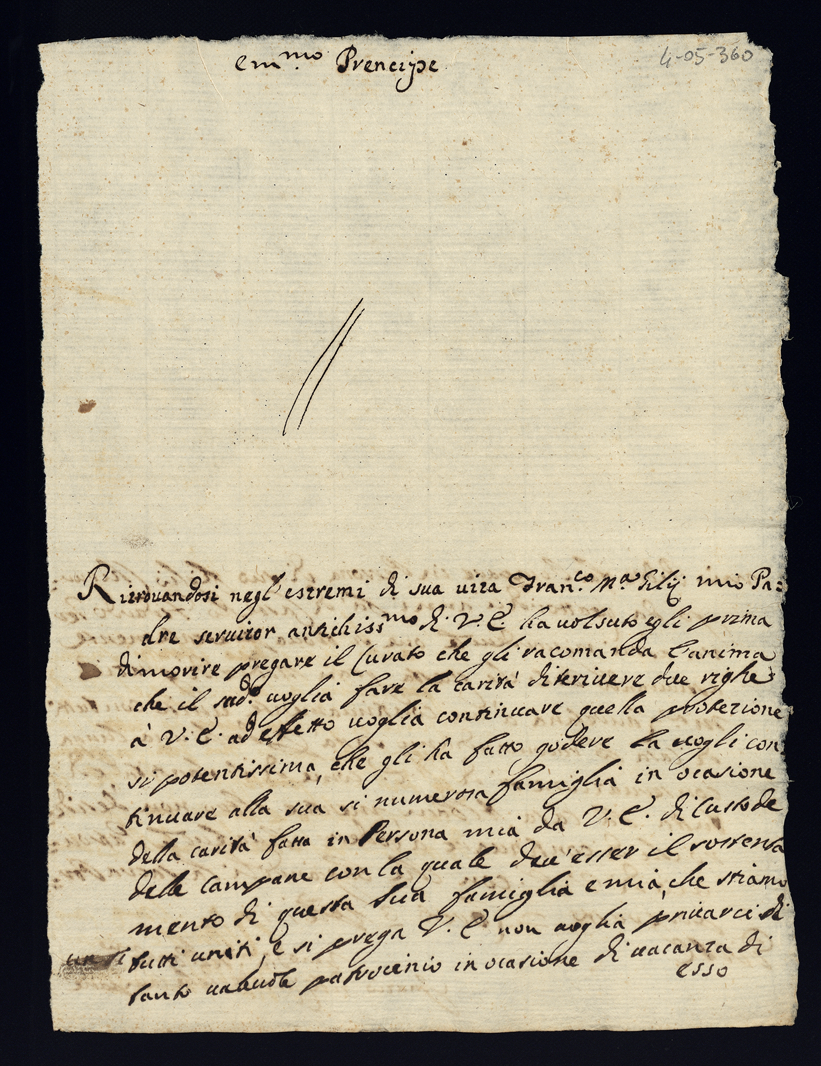 em.mo Prencipe
4-05-360
Ritrouandosi negl'estremi di sua uita Fran.co M.a Filij mio Pa=
dre seruitor antichiss.mo di V.E. ha uolsuto egli prima
di morire pregare il Curato che gli racomanda l'anima
che il sud.o uoglia fare la carità di scriuere due righe
à V.E. ad effetto uoglia continuare quella protezione
si potentissima, che gli ha fatto godere la uogli con
tinuare alla sua si numerosa famiglia in ocasione
della carità fatta in Persona mia da V.E. di Custode
delle Campane con la quale deu'esser il sostenta
mento di questa sua famiglia e mia, che stiamo
tutti uniti, e si prega V.E. non uoglia priuarci di
un si
tanto ualeuole patrocinio in ocasione di uacanza di
esso